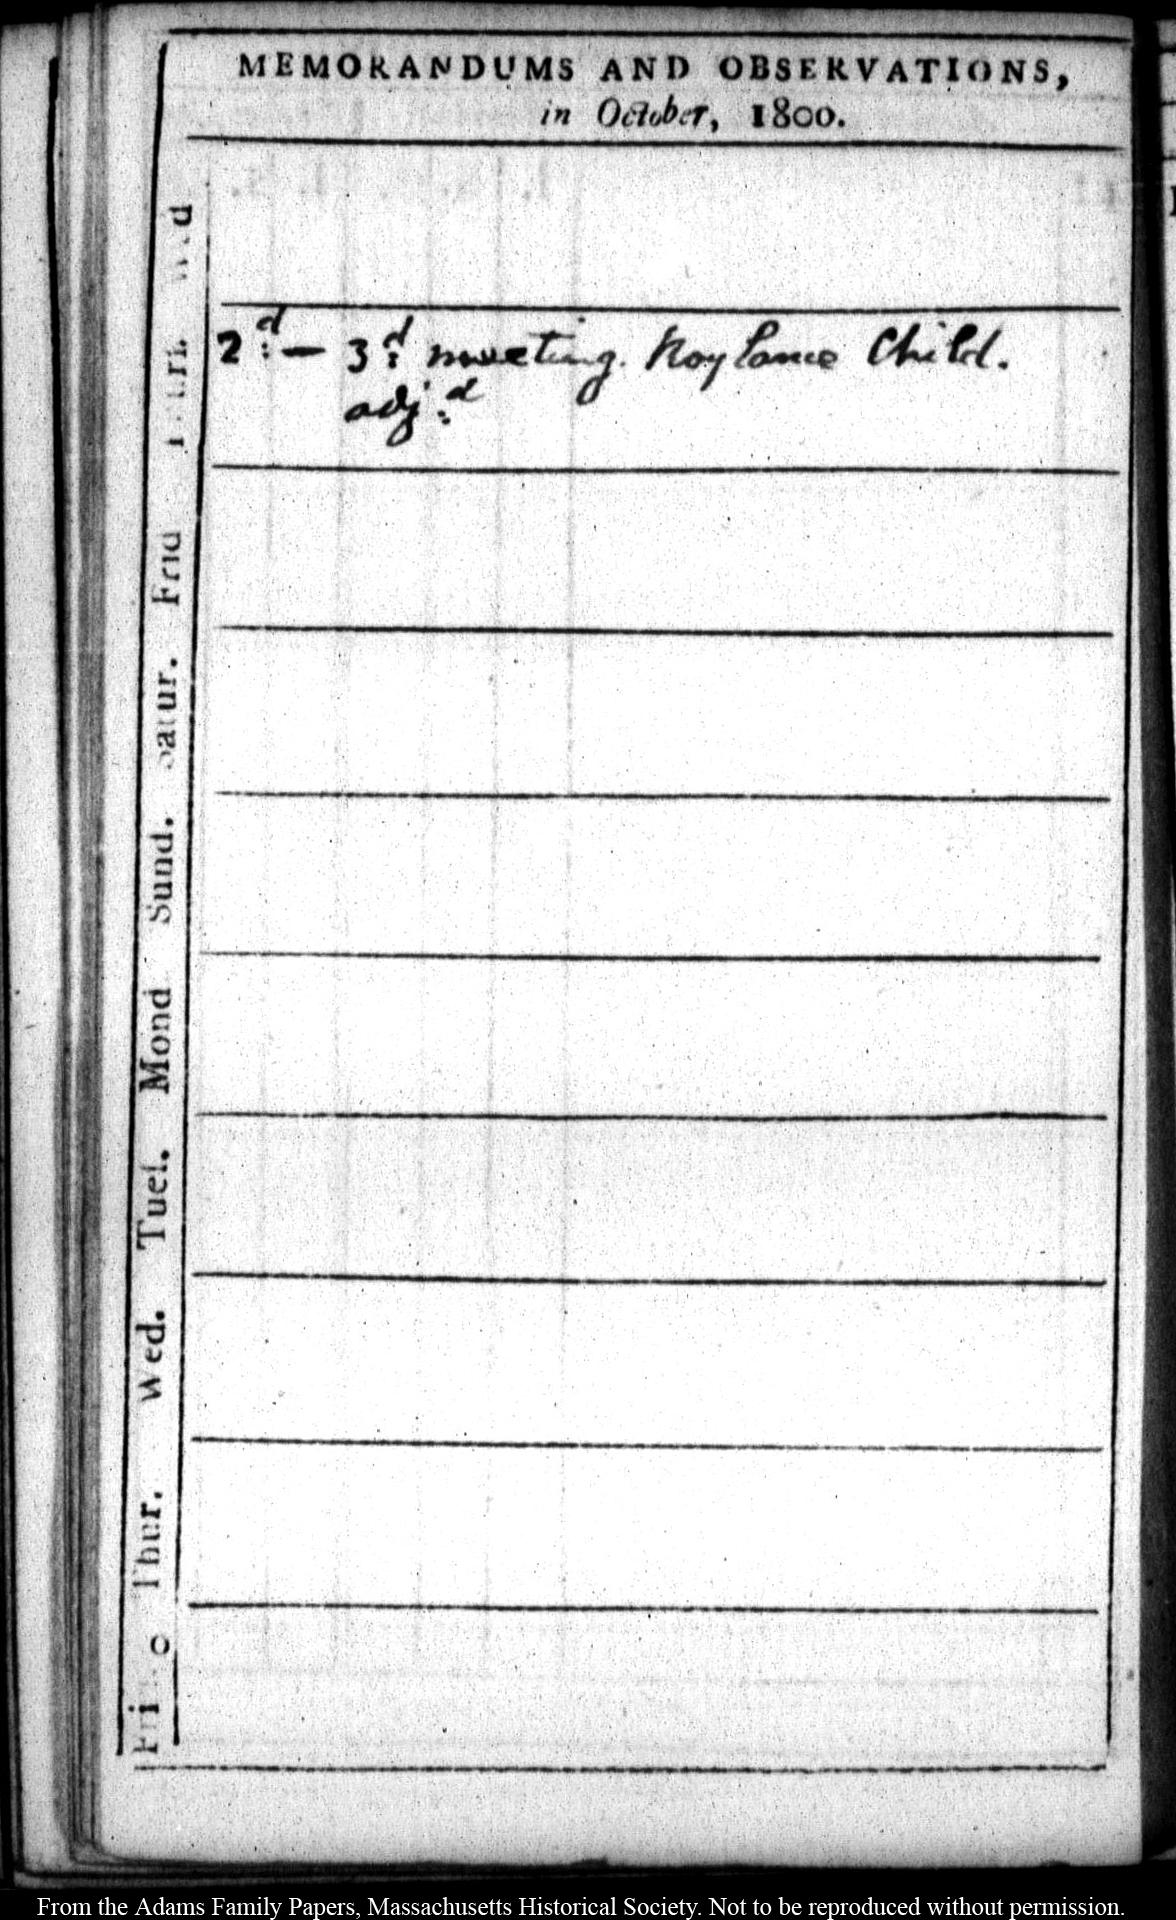 MEMORANDUMS AND OBSERVATIONS,
in October, 1800.
2:d — 3:d meeting. Child.
adj:d
Frid
Satur.
Sund.
Mond
Tues.
Wed.
Thur.
From the Adams Family Papers, Massachusetts Historical Society. Not to be reproduced without permission.